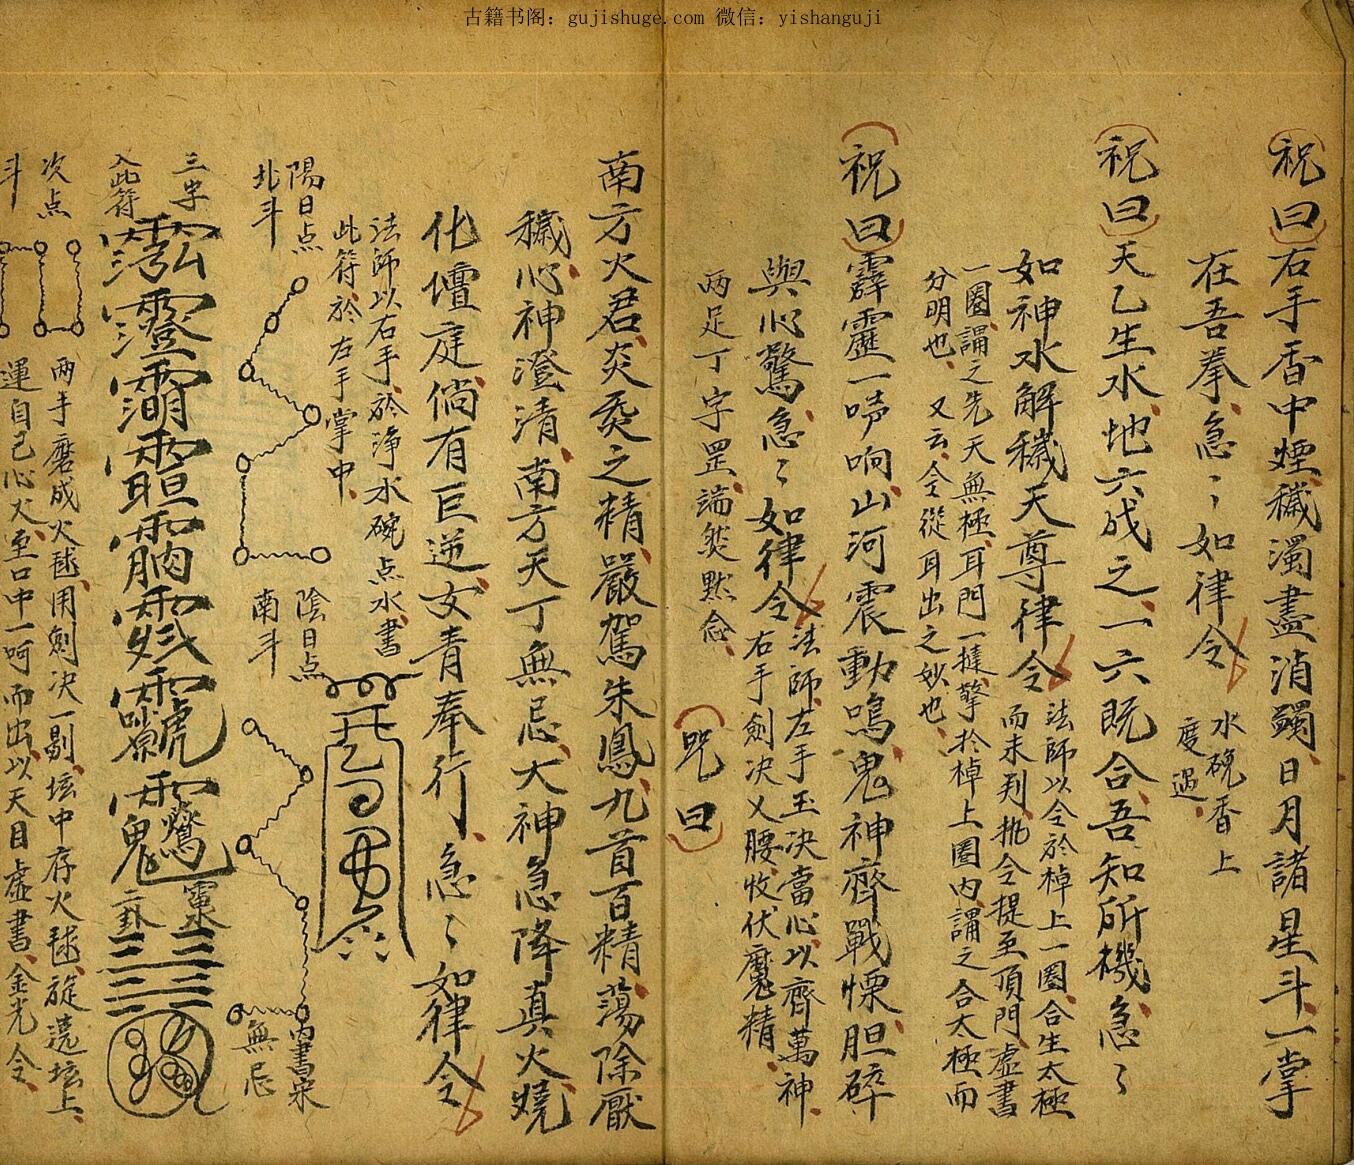 古籍书阁：gujishuge.com 微信：yishanguji
祝曰右手香中煙穢濁盡消蠲日月諸星斗一掌
在吾拳急〻如律令
水碗香上
度過
祝曰天乙生水地六成之一六既合吾知所機急〻
如神水解穢天尊律令
法師以令於棹上一圈合生太極
而未判抛令提至頂門虛書
一圈謂之先天無極耳門一撻擎於棹上圈内謂之合太極而
分明也又云令從耳出之妙也
祝曰霹靂一吚响山河震動鳴鬼神齊戰慄胆碎
與心驚急〻如律令
法師左手玉决當心以齊萬神
右手劍决乂腰收伏魔精
两足丁字罡端然默念
咒曰
南方火君炎烎之精嚴駕朱鳳九首百精蕩除厭
穢心神澄清南方天丁無忌大神急降真火燒
化壇庭倘有巨逆女青奉行急〻如律令
法師以右手於浄水碗点水書
此符於左手掌中
陽日点
北斗
陰日点
南斗
内書宋
無忌
三字
入此符
二卦
次点
斗
两手磨成火毬用劍决一剔坛中存火毬旋遶坛上
運自己心火至口中一呵而出以天目虛書金光令